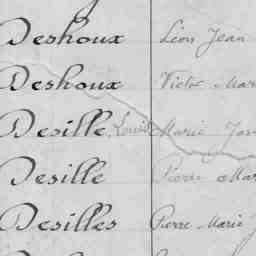 Deshoux Léon Jean
Deshoux Victor Mar
Desille, Louise Marie
Desille Pierre Mar
Desilles Pierre Marie